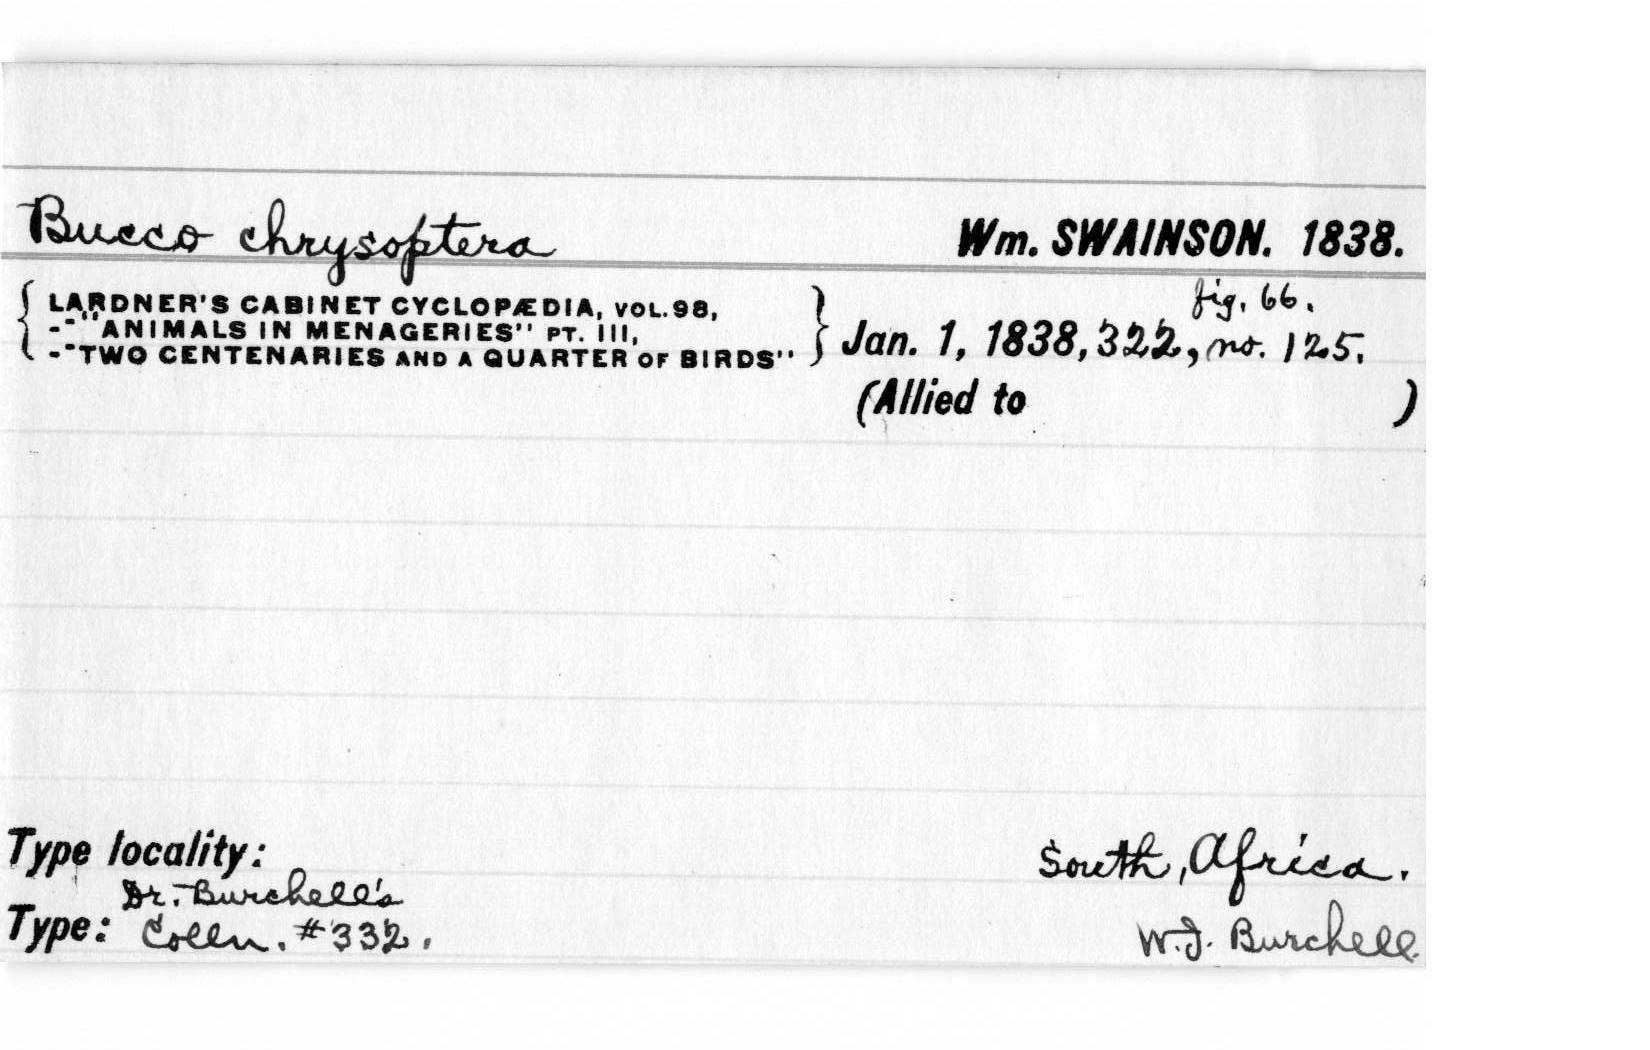 Bucco chrysoptera Wm. SWAINSON. 1838.
{ LARDNER'S CABINET CYCLOPÆDIA, VOL. 98, } fig. 66.
-"ANIMALS IN MENAGERIES" PT. III, Jan. 1, 1838, 322, no. 125.
-"TWO CENTENARIES AND A QUARTER OF BIRDS"
(Allied to )
Type locality: South, Africa.
Dr. Burchell's
Type: Colln. #332. W.J. Burchell.